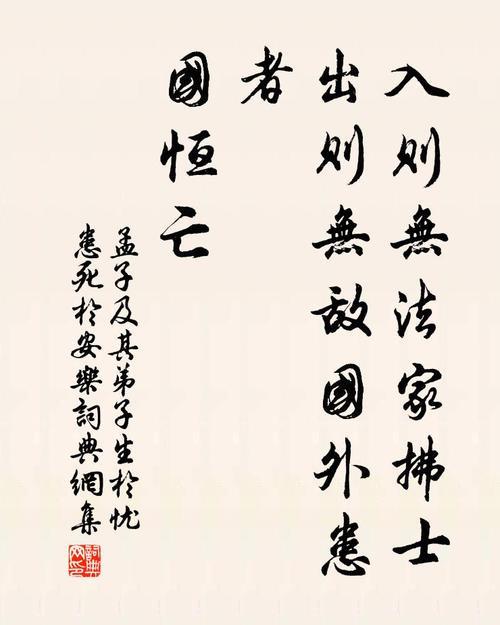 入則無法家拂士
出則無敌國外患
者
國恒亡
孟子及其弟子生於忧
患死於安樂詞典網集
詞典
网印